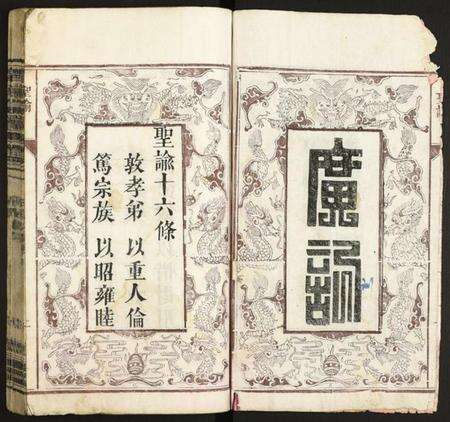 廣訓
聖諭十六條
敦孝弟 以重人倫
篤宗族 以昭雍睦